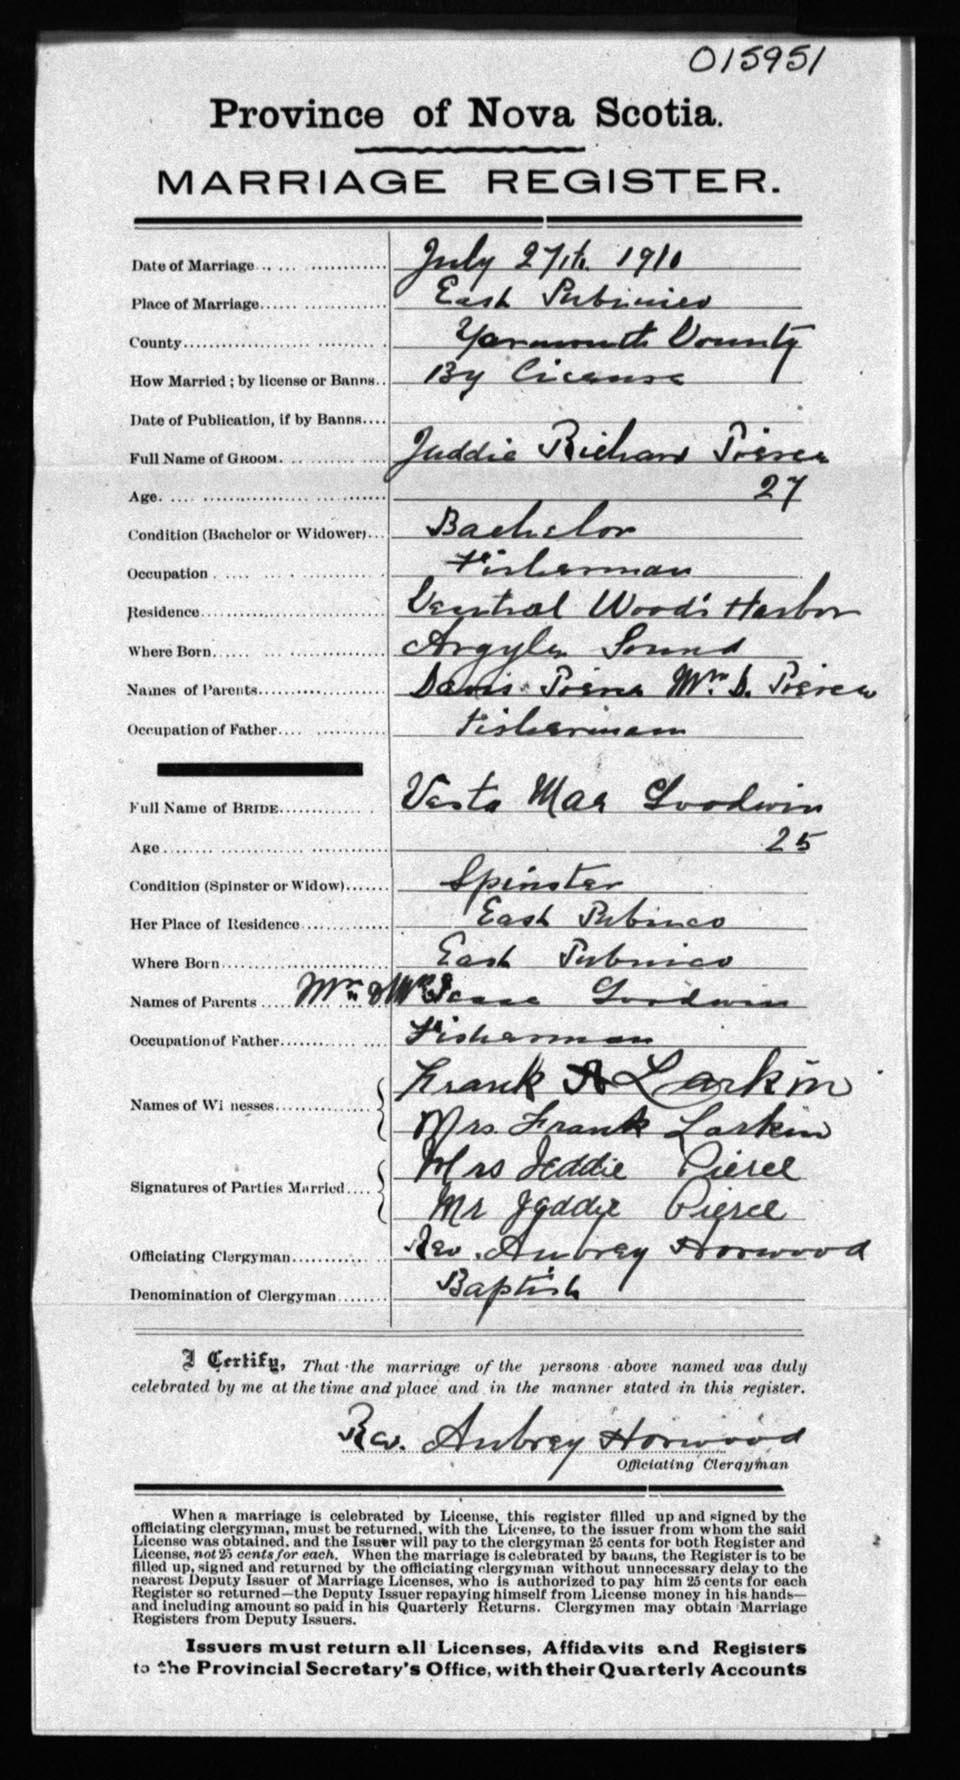 015951
Province of Nova Scotia.
MARRIAGE REGISTER.
Date of Marriage July 27th. 1910
Place of Marriage East Pubnico
County Yarmouth County
How Married; by license or Banns.. By License
Date of Publication, if by Banns....
Full Name of GROOM. Juddie Richard Pierce
Age. 27
Condition (Bachelor or Widower)... Bachelor
Occupation Fisherman
Residence Central Wood's Harbor
Where Born Argyle Sound
Names of Parents Pierce Mrs. D. Pierce
Occupation of Father Fisherman
Full Name of BRIDE Vesta Mae Goodwin
Age 25
Condition (Spinster or Widow) Spinster
Her Place of Residence East Pubnico
Where Born East Pubnico
Names of Parents Mr. & Mrs. Goodwin
Occupation of Father Fisherman
Names of Wi nesses Frank A Larkin
Mrs. Frank Larkin
Signatures of Parties Married Mrs Jeddie Pierce
Mr Jeddie Pierce
Officiating Clergyman Rev. Aubrey Horwood
Denomination of Clergyman Baptist
I Certify, That the marriage of the persons above named was duly
celebrated by me at the time and place and in the manner stated in this register.
Rev. Aubrey Horwood
Officiating Clergyman
When a marriage is celebrated by License, this register filled up and signed by the
officiating clergyman, must be returned, with the License, to the issuer from whom the said
License was obtained, and the Issuer will pay to the clergyman 25 cents for both Register and
License, not 25 cents for each. When the marriage is celebrated by banns, the Register is to be
filled up, signed and returned by the officiating clergyman without unnecessary delay to the
nearest Deputy Issuer of Marriage Licenses, who is authorized to pay him 25 cents for each
Register so returned—the Deputy Issuer repaying himself from License money in his hands—
and including amount so paid in his Quarterly Returns. Clergymen may obtain Marriage
Registers from Deputy Issuers.
Issuers must return all Licenses, Affidavits and Registers
to the Provincial Secretary's Office, with their Quarterly Accounts